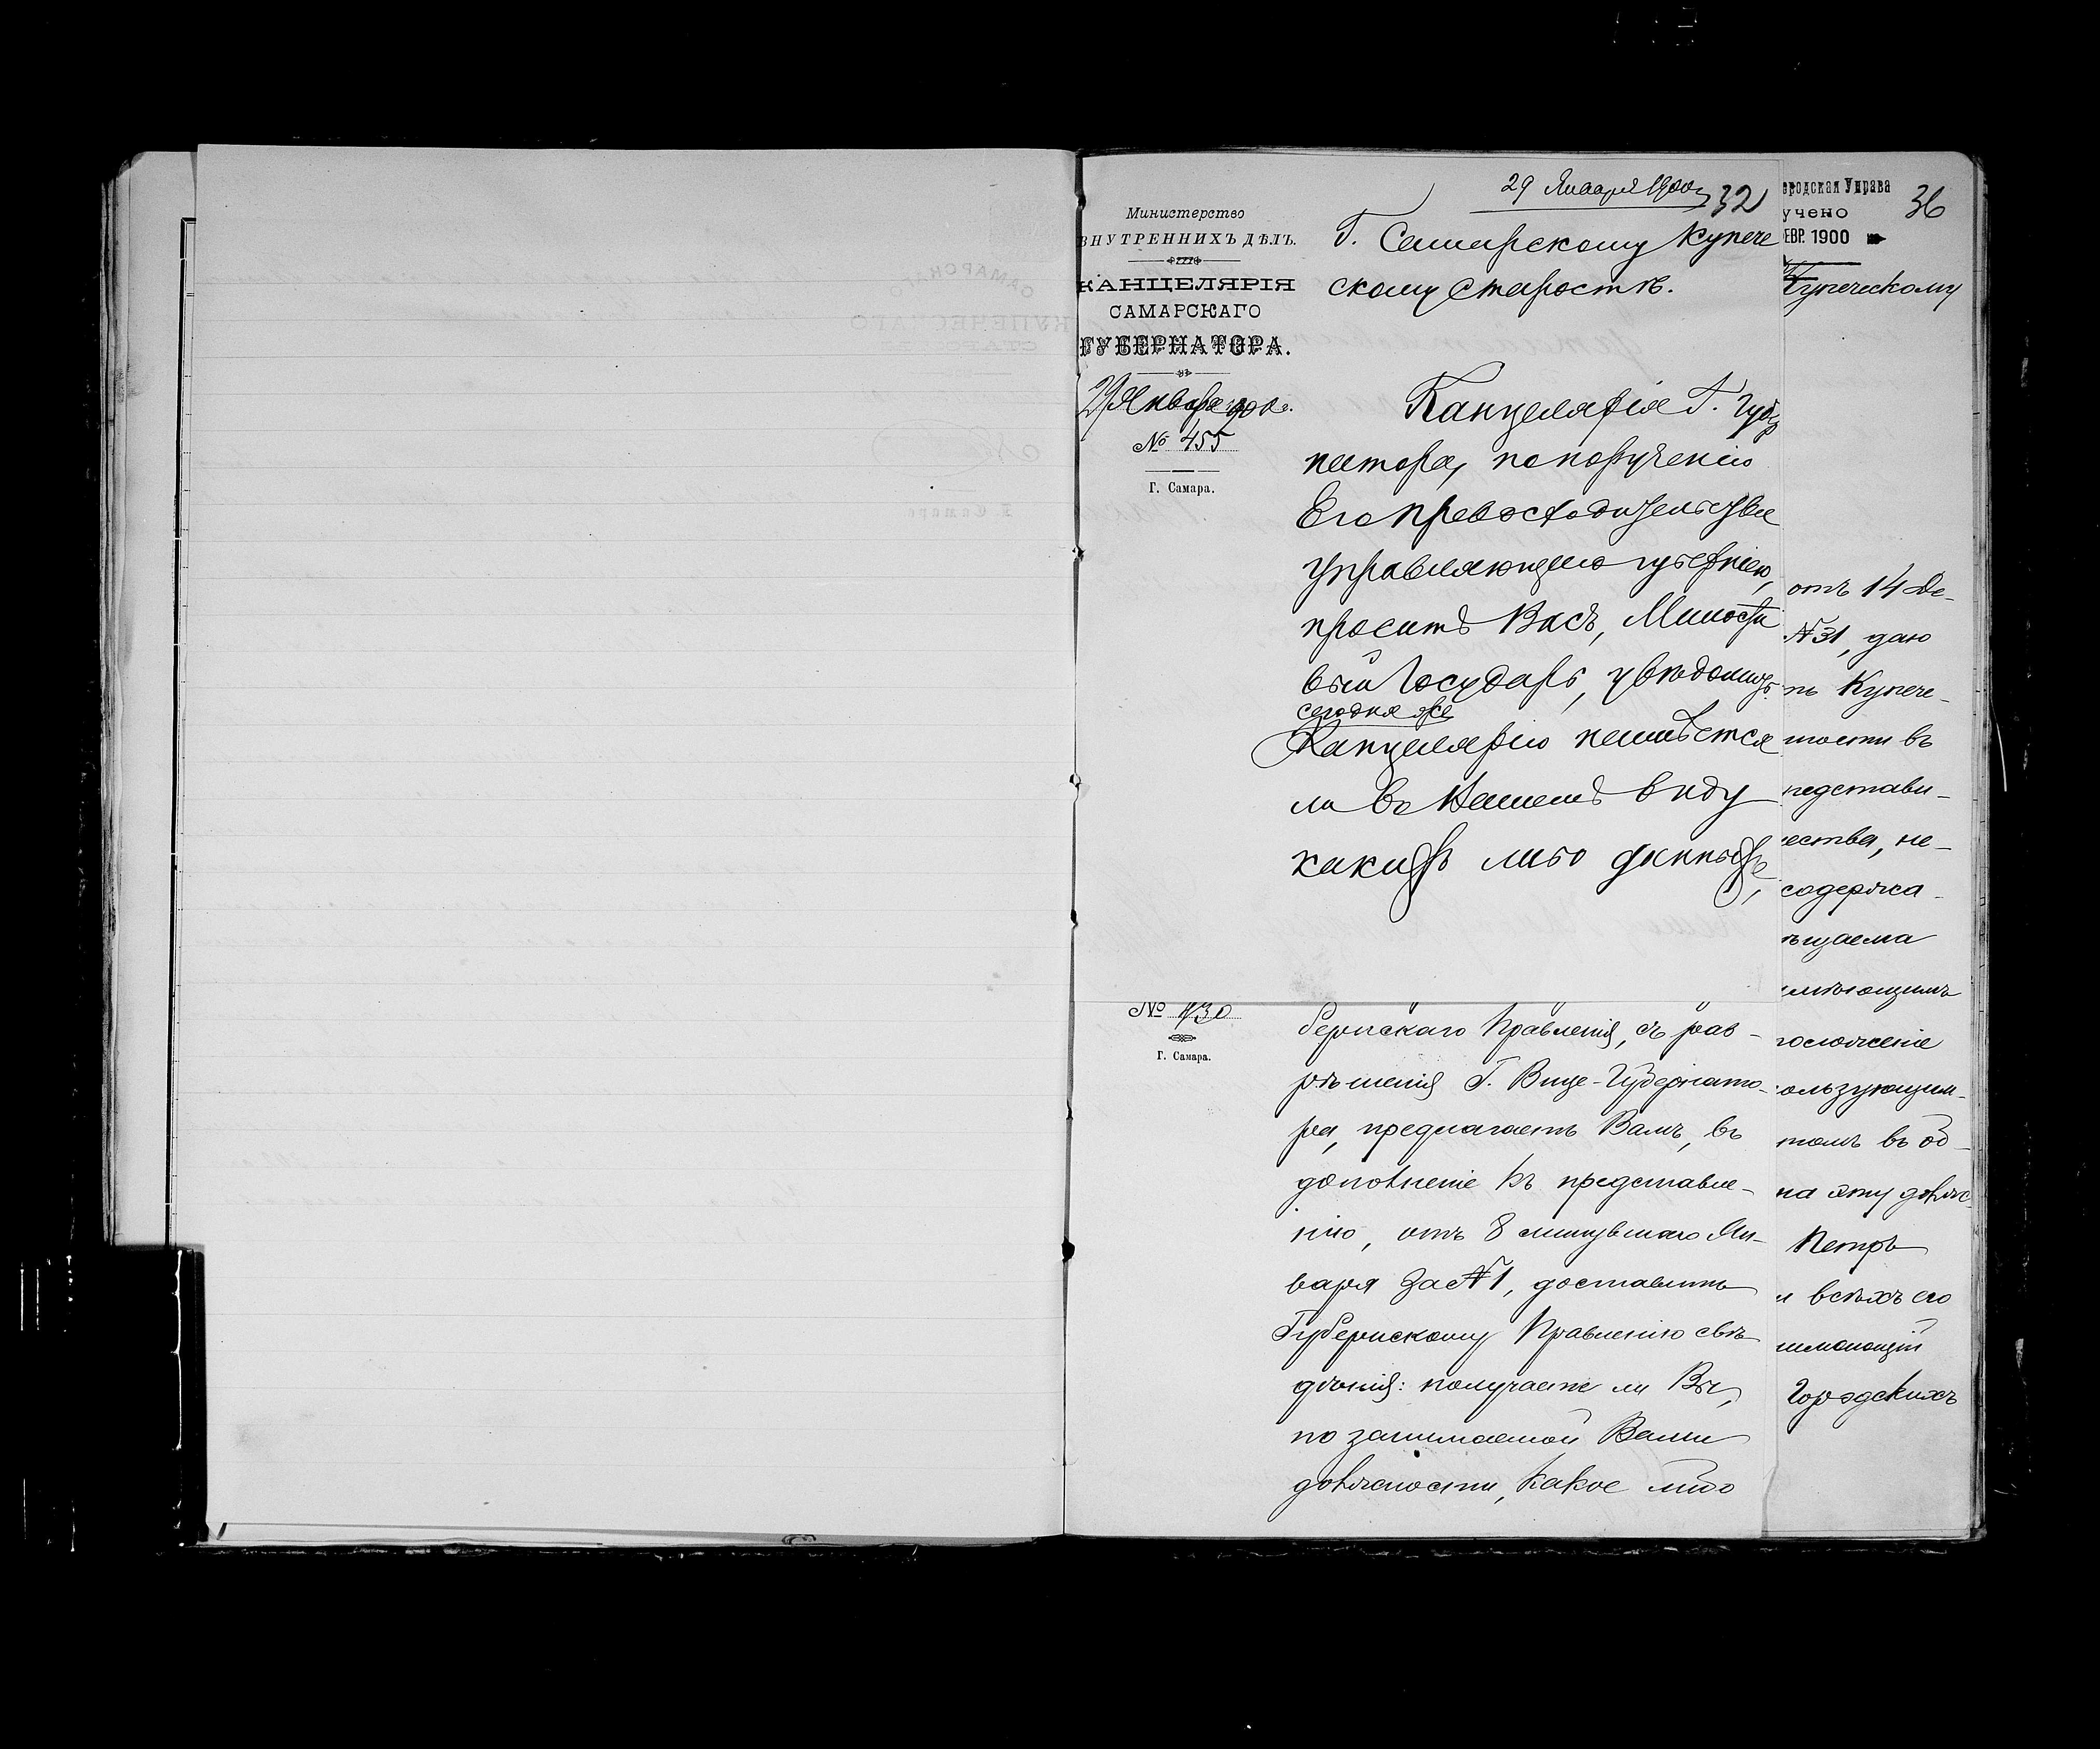 29 Января 1900 г. 32
Министерство
ВНУТРЕННИХЪ ДѢЛЪ.
КАНЦЕЛЯРІЯ
САМАРСКАГО
ГУБЕРНАТОРА.
29 Января 1900 г.
№ 455
Г. Самара.
Г. Самарскому Купече
скому Старостѣ.
Канцелярія Г. Губер
натора, по порученію
Его Превосходительства
Управляющаго губерніею,
проситъ Васъ, Милости
вый Государь, увѣдомить
сегодня же
Канцелярію не имѣется
ли въ Вашемъ виду
какихъ либо данныхъ,
№ 430
Г. Самара.
бернскаго Правленія, съ раз-
рѣшенія Г. Вице-Губернато-
ра, предлагаетъ Вамъ, въ
дополненіе къ представле-
нію, отъ 8 минувшаго Ян-
варя за №1, доставить
Губернскому Правленію свѣ-
дѣнія: получаете ли Вы,
по занимаемой Вами
должности, какое либо
ородская Управа
учено
ЕВР. 1900
36
Купеческому
отъ 14 Де-
№31, даю
ть Купече-
ности въ
редстави-
ества, не-
содержа-
ѣщаема
имѣющимъ
положеніе
ользующим-
томъ въ об-
на эту долж-
Петръ
и всѣхъ его
нимающій
Городскихъ